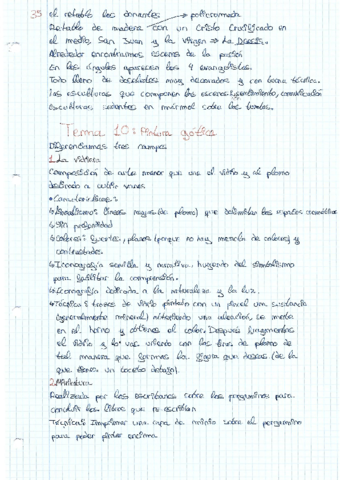 35 el retablo los donantes → policromada
Retablo de madera con un Cristo Crucificado en
el medio, San Juan y la virgen → La Deesis.
Alrededor encontramos escenas de la pasión
En los ángulos aparecen los 4 evangelistas.
Todo lleno de detalles muy decorados y con buena técnica.
las esculturas que componen las escenas
Esculturas en mármol sobre las tumbas.
Tema 10: Pintura gótica
Diferenciamos tres campos
1. La vidriera
Composición de arte menor que usa el vidrio y el plomo
destinado a cubrir vanos
• Características:
↳ (líneas negras (de plomo) que delimitan los espacios cromáticos
↳ Sin profundidad
↳ Colores: fuertes, planos (porque no hay mezcla de colores) y
contrastados
↳ Iconografía sencilla y narrativa, huyendo del simbolismo
para facilitar la comprensión.
↳ Iconografía dedicada a la naturaleza y la luz.
↳ Técnica: trozos de vidrio pintado con un pincel una sustancia
(generalmente mineral) se meten
en el horno y obtienes el color. Después fragmentas
el vidrio y los vas uniendo con las tiras de plomo de
tal manera que formas la figura que deseas (de la
que tienes un boceto debajo).
2. Miniatura
Realizada por los escribanos sobre los pergaminos para
los libros que no escribían
Técnica: Imprimar una capa de sobre el pergamino
para poder pintar encima